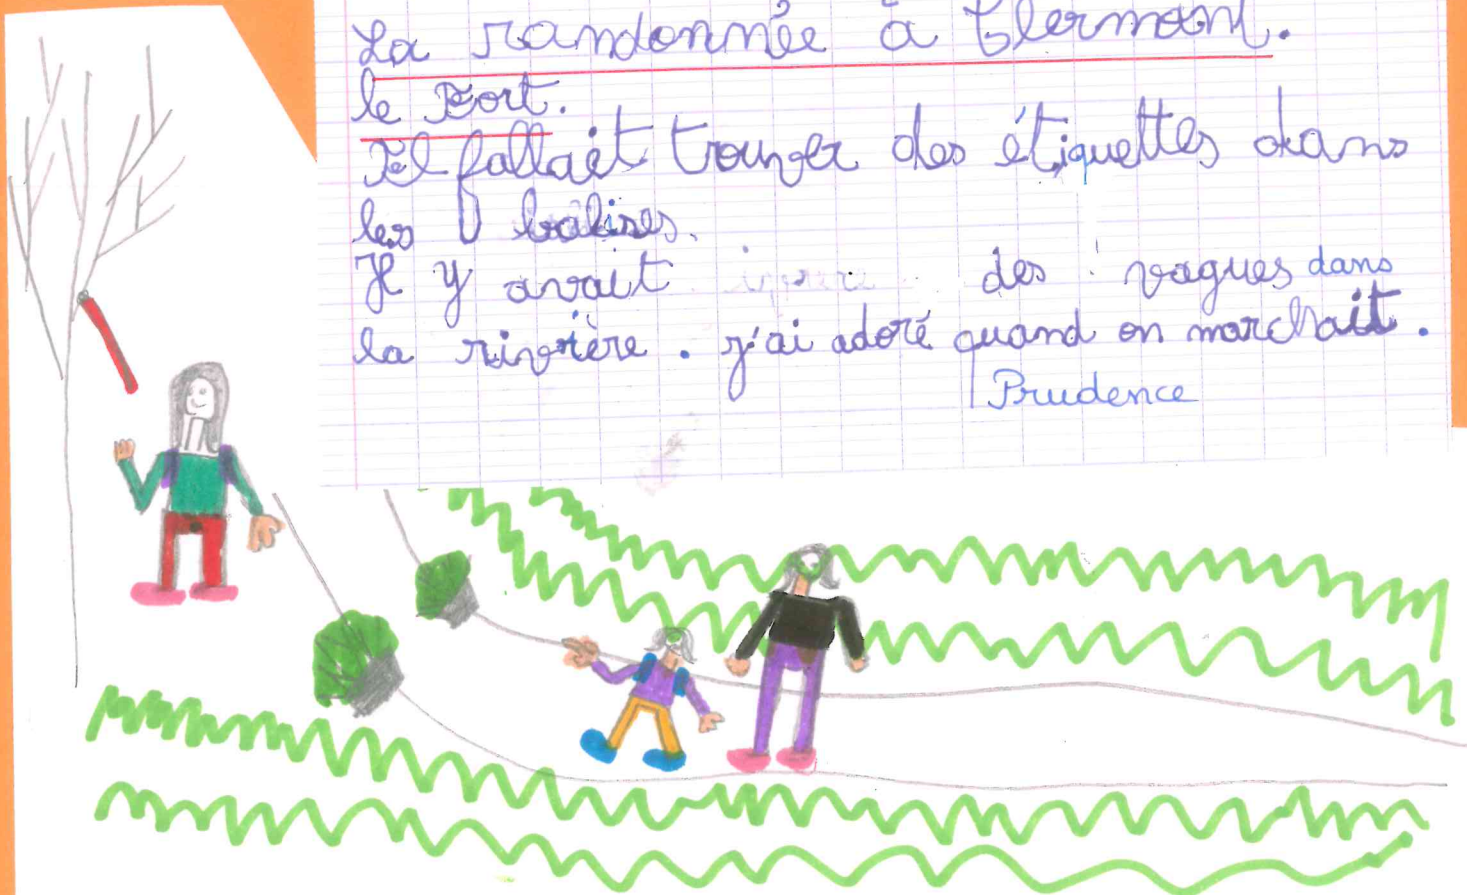 La randonnée à Clermont.
le Fort.
Il fallait trouver des étiquettes dans
les balises.
Il y avait des vagues dans
la rivière. j'ai adoré quand on marchait.
Prudence